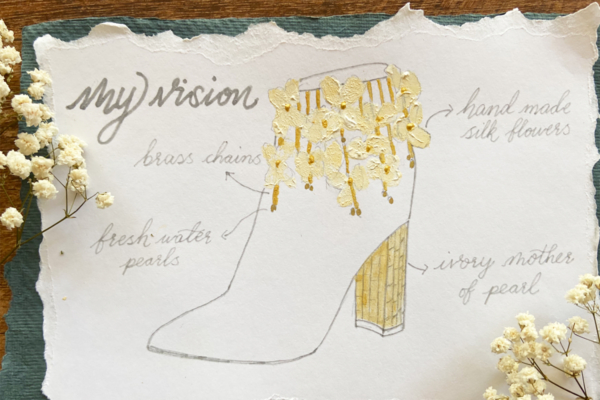 my vision
hand made
silk flowers
brass chains
fresh water
pearls
ivory mother
of pearl